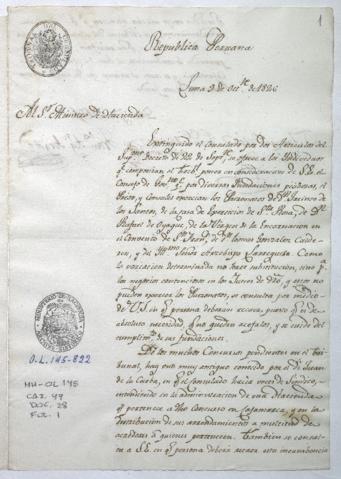 1
República Peruana
Lima 3 de Oct.e de 1826
Al S.r Ministro de Hacienda
Extinguido el Consulado por dos Articulos del
Sup.mo Decreto de 22 de Sep.e, se ofrece a los Individuos
q.e componian el trib.l poner en consideracion de S.E. el
Consejo de Gov.no q.e por diversas fundaciones piadosas, el
Prior, y Consules exercian los Patronatos de
los Santos, de la casa de Exposicion de S.ta Rosa, de D.n
de la Virgen de la Encarnacion en
el Convento de S.n Juan, de D.n Tomas Gonzalez Calde-
ron, y del Ill.mo Señor Arzobispo Como
la vocacion determinada no hace substitucion, sino p.a
los negocios contenciosos en los Jueces de dro, y estos no
pueden exercer los Patronatos, se consulta por medio
de V.S. en q.e persona deberan recaer, puesto q.e es de
absoluta necesidad q.e no queden acefalos, y se cuide del
cumplim.to de sus fundaciones.
De los muchos Concursos pendientes en el tri-
bunal, hay uno muy antiguo conocido por el de Juan
de la Cueba, en q.e el Consulado hacia veces de Sindico,
entendiendo en la administracion de una Hacienda
q.e pertenece a d.ho Concurso en Cajamarca, y en la
distribucion de sus arrendamientos a multitud de
acrehedores a quienes pertenecen. Tambien se consul-
ta a S.E. en q.e persona deberá recaer esta incumbencia
O.L. 145-822
MH-OL 145
CAJ. 47
DOC. 28
FOL. 1